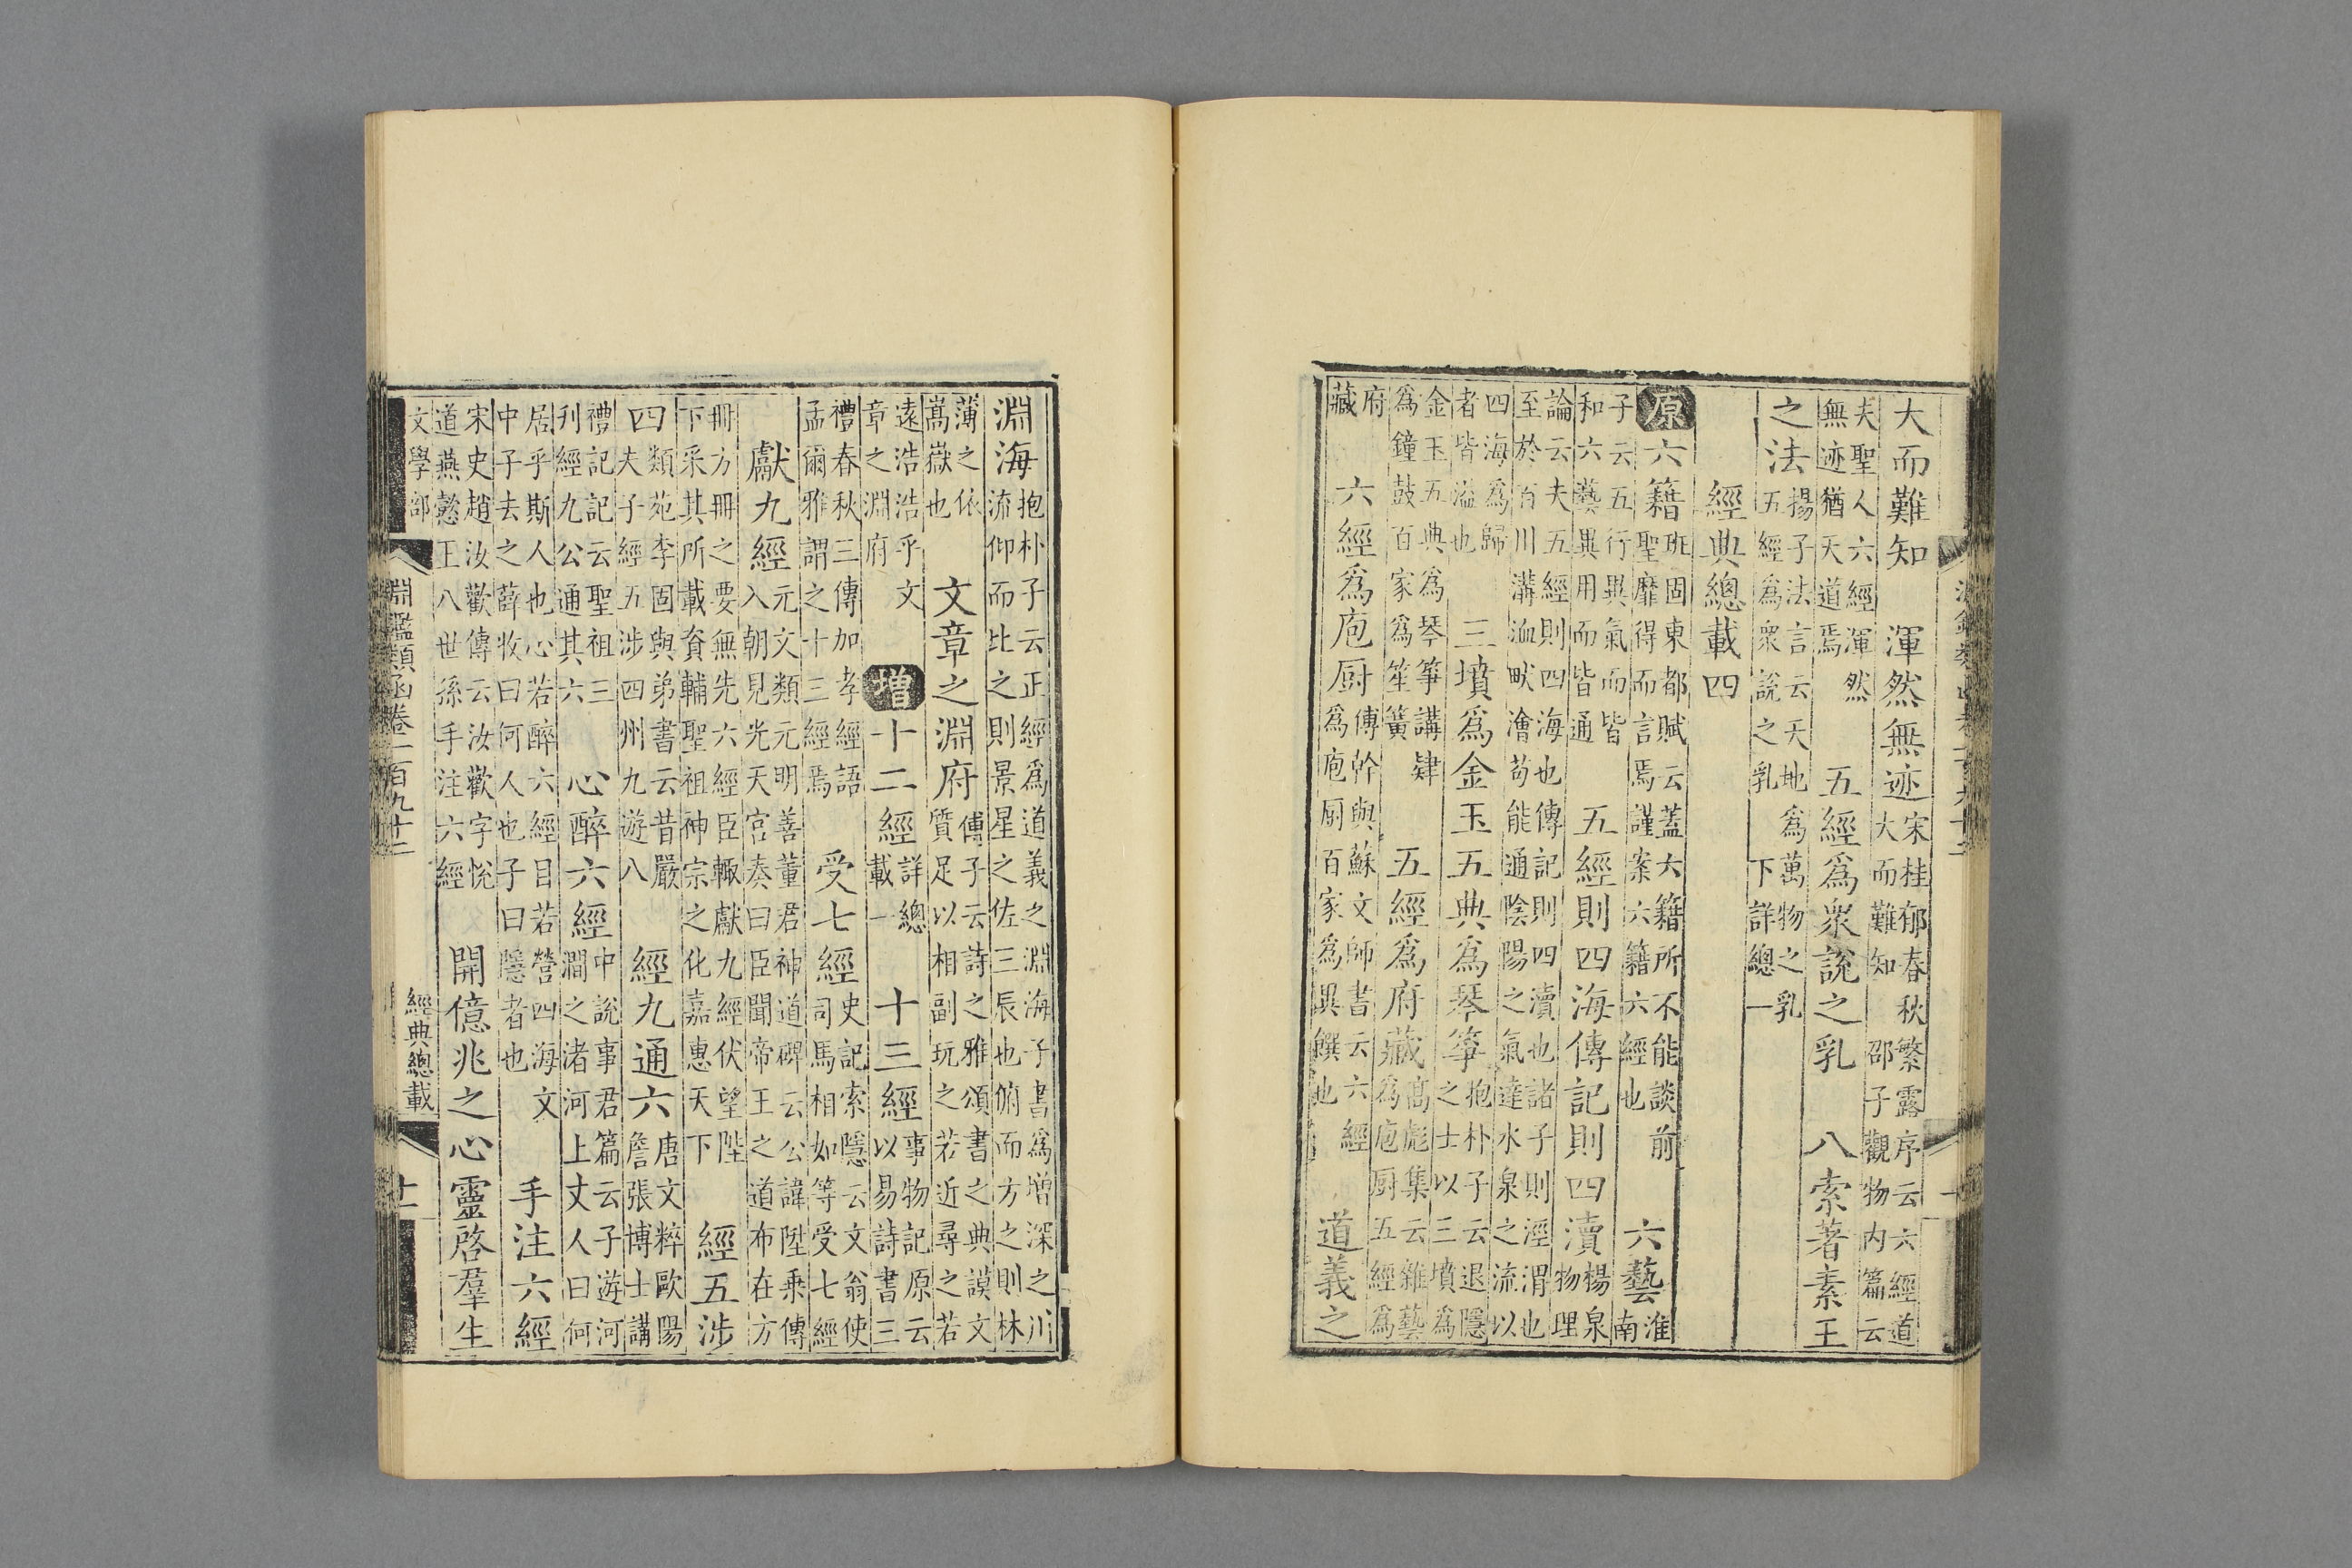 大而難知　渾然無迹
宋桂郁春秋繁露序云六經道
大而難知　邵子觀物内篇云
夫聖人六經渾然
無迹猶天道焉
五經爲衆說之乳　八索著素王
之法
揚子法言云天地爲萬物之乳
五經爲衆說之乳下詳總一
經典總載四
原　六籍
班固東都賦云蓋六籍所不能談前
聖靡得而言焉謹案六籍六經也
六藝
淮
南
子云五行異氣而皆
和六藝異用而皆通
五經則四海傳記則四瀆
楊泉
物理
論云夫五經則四海也傳記則四瀆也諸子則涇渭也
至於百川溝洫畎澮苟能通陰陽之氣達水泉之流以
四海爲歸
者皆溢也
三墳爲金玉五典爲琴箏
抱朴子云退隱
之士以三墳爲
金玉五典爲琴箏講肄
爲鐘鼓百家爲笙簧
五經爲府藏
高彪集云雜藝
爲庖厨五經爲
府
藏
六經爲庖厨
傅幹與蘇文師書云六經
爲庖厨百家爲異饌也
道義之
淵海
抱朴子云正經爲道義之淵海子書爲增深之川
流仰而比之則景星之佐三辰也俯而方之則林
薄之依
嵩嶽也
文章之淵府
傅子云詩之雅頌書之典謨文
質足以相副玩之若近尋之若
遠浩浩乎文
章之淵府
增　十二經
詳總
載一
十三經
事物記原云
以易詩書三
禮春秋三傳加孝經語
孟爾雅謂之十三經焉
受七經
史記索隱云文翁使
司馬相如等受七經
獻九經
元文類元明善董君神道碑云公諱陞乗傳
入朝見光天宮奏曰臣聞帝王之道布在方
冊方冊之要無先六經臣輙獻九經伏望陛
下采其所載資輔聖祖神宗之化嘉惠天下
經五涉
四
類苑李固與弟書云昔嚴
夫子經五涉四州九遊八
經九通六
唐文粹歐陽
詹張博士講
禮記記云聖祖三
刋經九公通其六
心醉六經
中說事君篇云子遊河
澗之渚河上丈人曰何
居乎斯人也心若醉六經目若營四海文
中子去之薛牧曰何人也子曰隱者也
手注六經
宋史趙汝歡傳云汝歡字悅
道燕懿王八世孫手注六經
開億兆之心靈啓羣生
文學部
淵鑑類函卷一百九十二
經典總載
十一